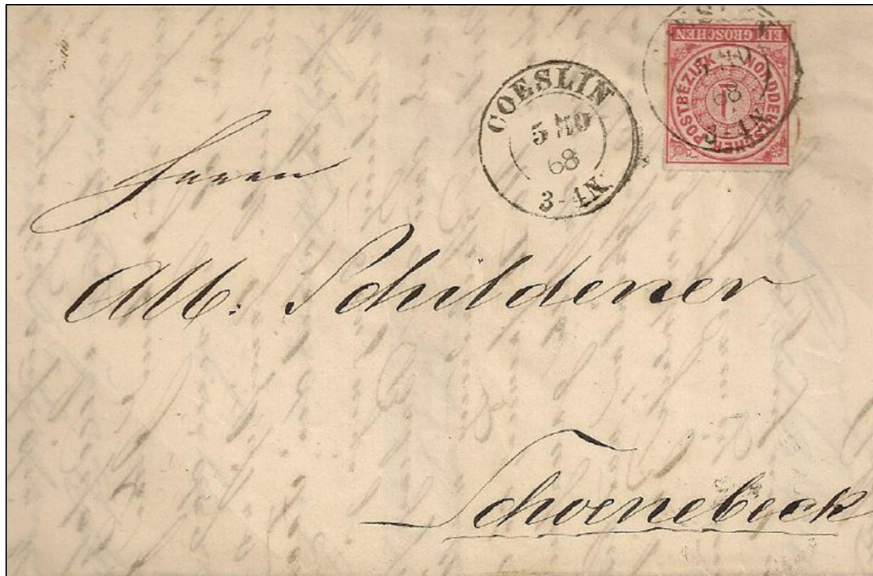 COESLIN
5 10
68
3-4N.
EIN GROSCHEN
NORDDEUTSCHER POSTBEZIRK
1
68
3-4N
Herrn
Alb: Schildener
Schoenebeck